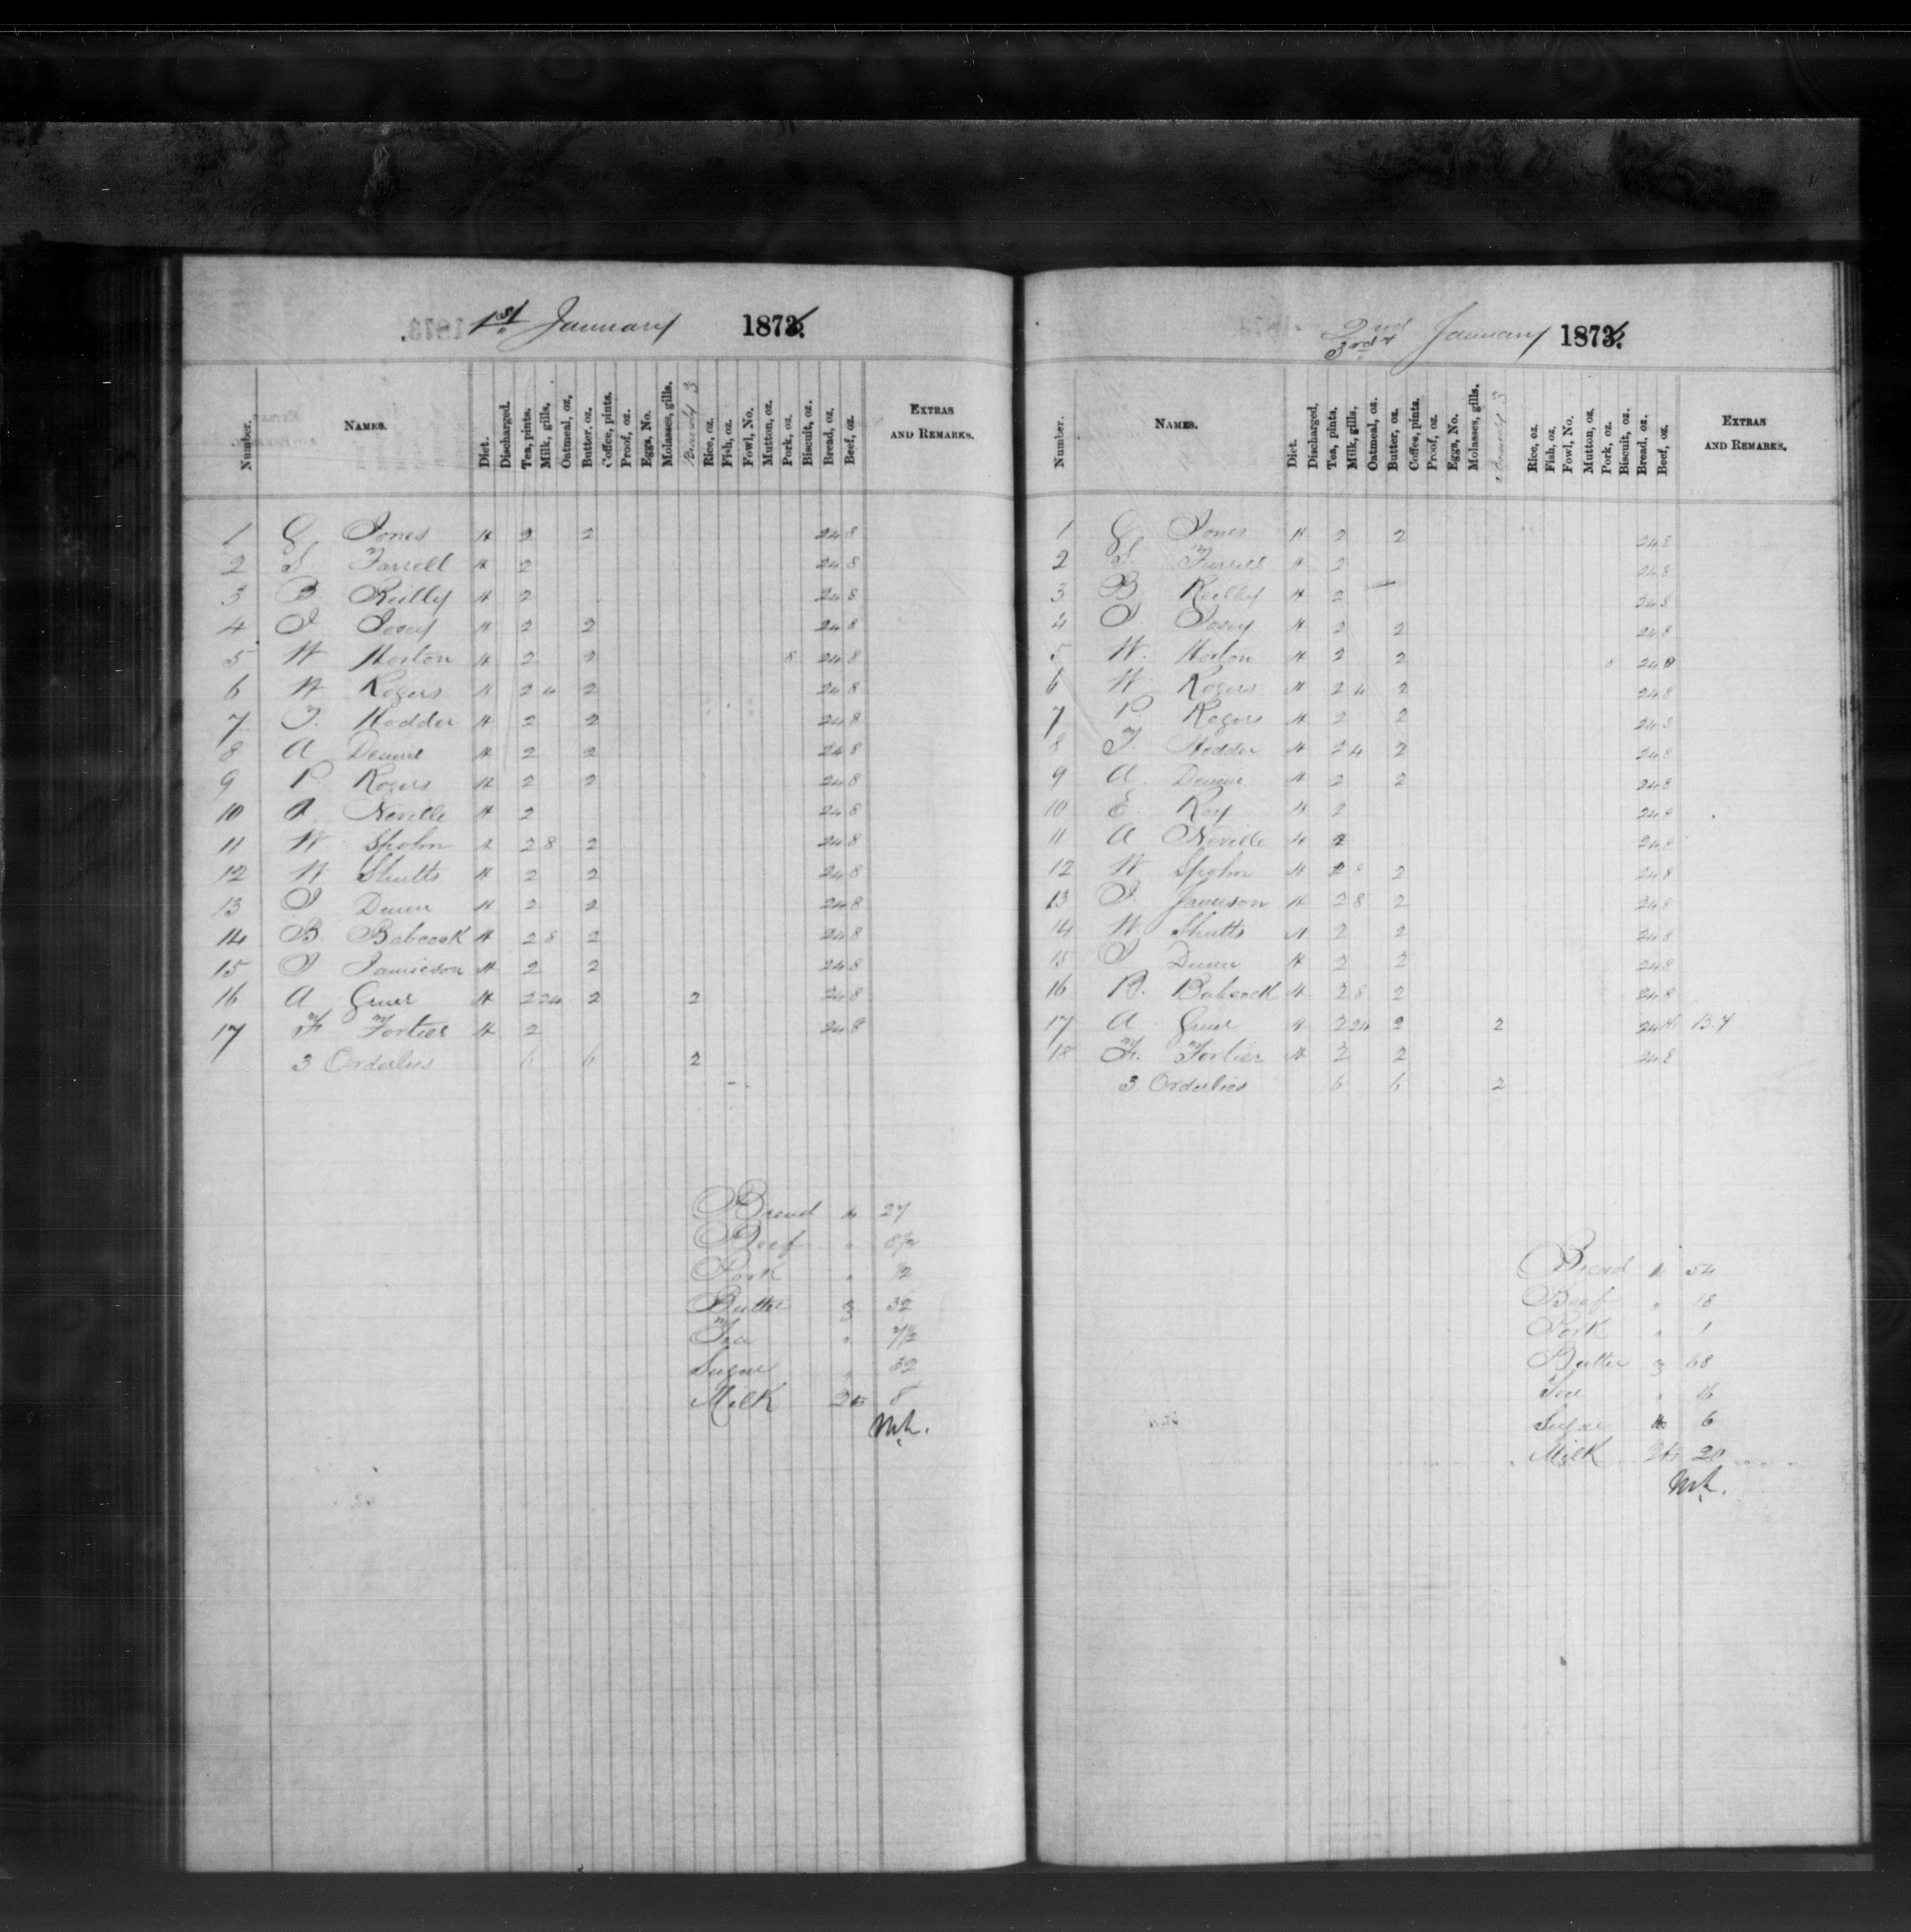 1st January 1873.
Number. NAMES. Diet. Discharged. Tea, pints. Milk, gills. Oatmeal, oz. Butter, oz. Coffee, pints. Proof, oz. Eggs, No. Molasses, gills. Rice, oz. Fish, oz. Fowl, No. Mutton, oz. Pork, oz. Biscuit, oz. Bread, oz. Beef, oz. EXTRAS AND REMARKS.
1 G Jones H 2 2 24 8
2 S Farrell H 2 24 8
3 B. Reilly H 2 24 8
4 J Posey H 2 2 24 8
5 W Horton H 2 2 8 24 8
6 W Rogers H 2 4 2 24 8
7 T. Hodder H 2 2 24 8
8 A Dennie H 2 2 24 8
9 P. Rogers H 2 2 24 8
10 A. Neville H 2 24 8
11 W. Spohn 2 8 2 24 8
12 W Shutts H 2 2 24 8
13 J Dunn H 2 2 24 8
14 B. Babcock H 2 8 2 24 8
15 J Jamieson H 2 2 24 8
16 A Greer H 2 24 2 2 24 8
17 F. Fortier H 2 24 8
3 Orderlies 6 6 2
Bread lb 27
Beef " 8½
Pork " ½
Butter 3 32
Tea " 7½
Sugar " 32
Milk qts 8
2nd
3rd January 1873.
Number. NAMES. Diet. Discharged. Tea, pints. Milk, gills. Oatmeal, oz. Butter, oz. Coffee, pints. Proof, oz. Eggs, No. Molasses, gills. Rice, oz. Fish, oz. Fowl, No. Mutton, oz. Pork, oz. Biscuit, oz. Bread, oz. Beef, oz. EXTRAS AND REMARKS.
1 G Jones H 2 2 24 8
2 S. Farrell H 2 24 8
3 B Reilly H 2 24 8
4 J Posey H 2 2 24 8
5 W. Horton H 2 2 8 24 8
6 W Rogers H 2 4 2 24 8
7 P. Rogers H 2 2 24 8
8 T. Hodder H 2 4 2 24 8
9 A. Dennie H 2 2 24 8
10 E. Ray H 2 24 8
11 A Neville H 2 24 8
12 W Spohn H 2 8 2 24 8
13 J. Jamieson H 2 8 2 24 8
14 W Shutts H 2 2 24 8
15 J Dunn H 2 2 24 8
16 B. Babcock H 2 8 2 24 8
17 A Greer H 2 24 2 2 24
18 F. Fortier H 2 2 24 8
3 Orderlies 6 6 2
Bread lb 54
Beef " 18
Pork " 1
Butter 3 68
Tea " 16
Sugar lb 6
Milk qts 20